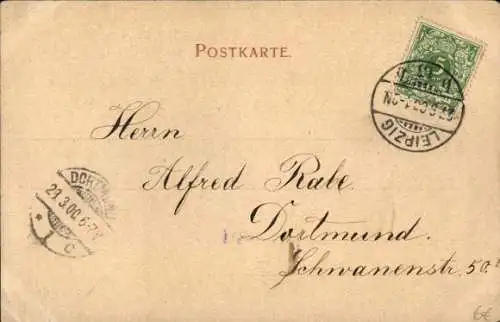 POSTKARTE.
5
LEIPZIG
Herrn
Alfred Rabe.
Dortmund.
Schwanenstr. 50.
DORTMUND
29.3.00.6-7V
* c
6€